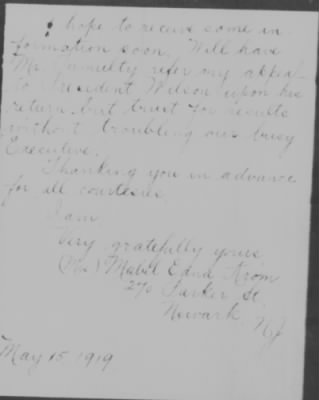 I hope to receive some in-
formation soon. Will have
Mr. Tumulty refer my appeal
to President Wilson upon his
return, but trust for results
without troubling our busy
Executive.
Thanking you in advance
for all courtesies
I am
Very gratefully yours
(Mrs.) Mabel Edna Krom
270 Parker St.
Newark N.J.
May 15 1919